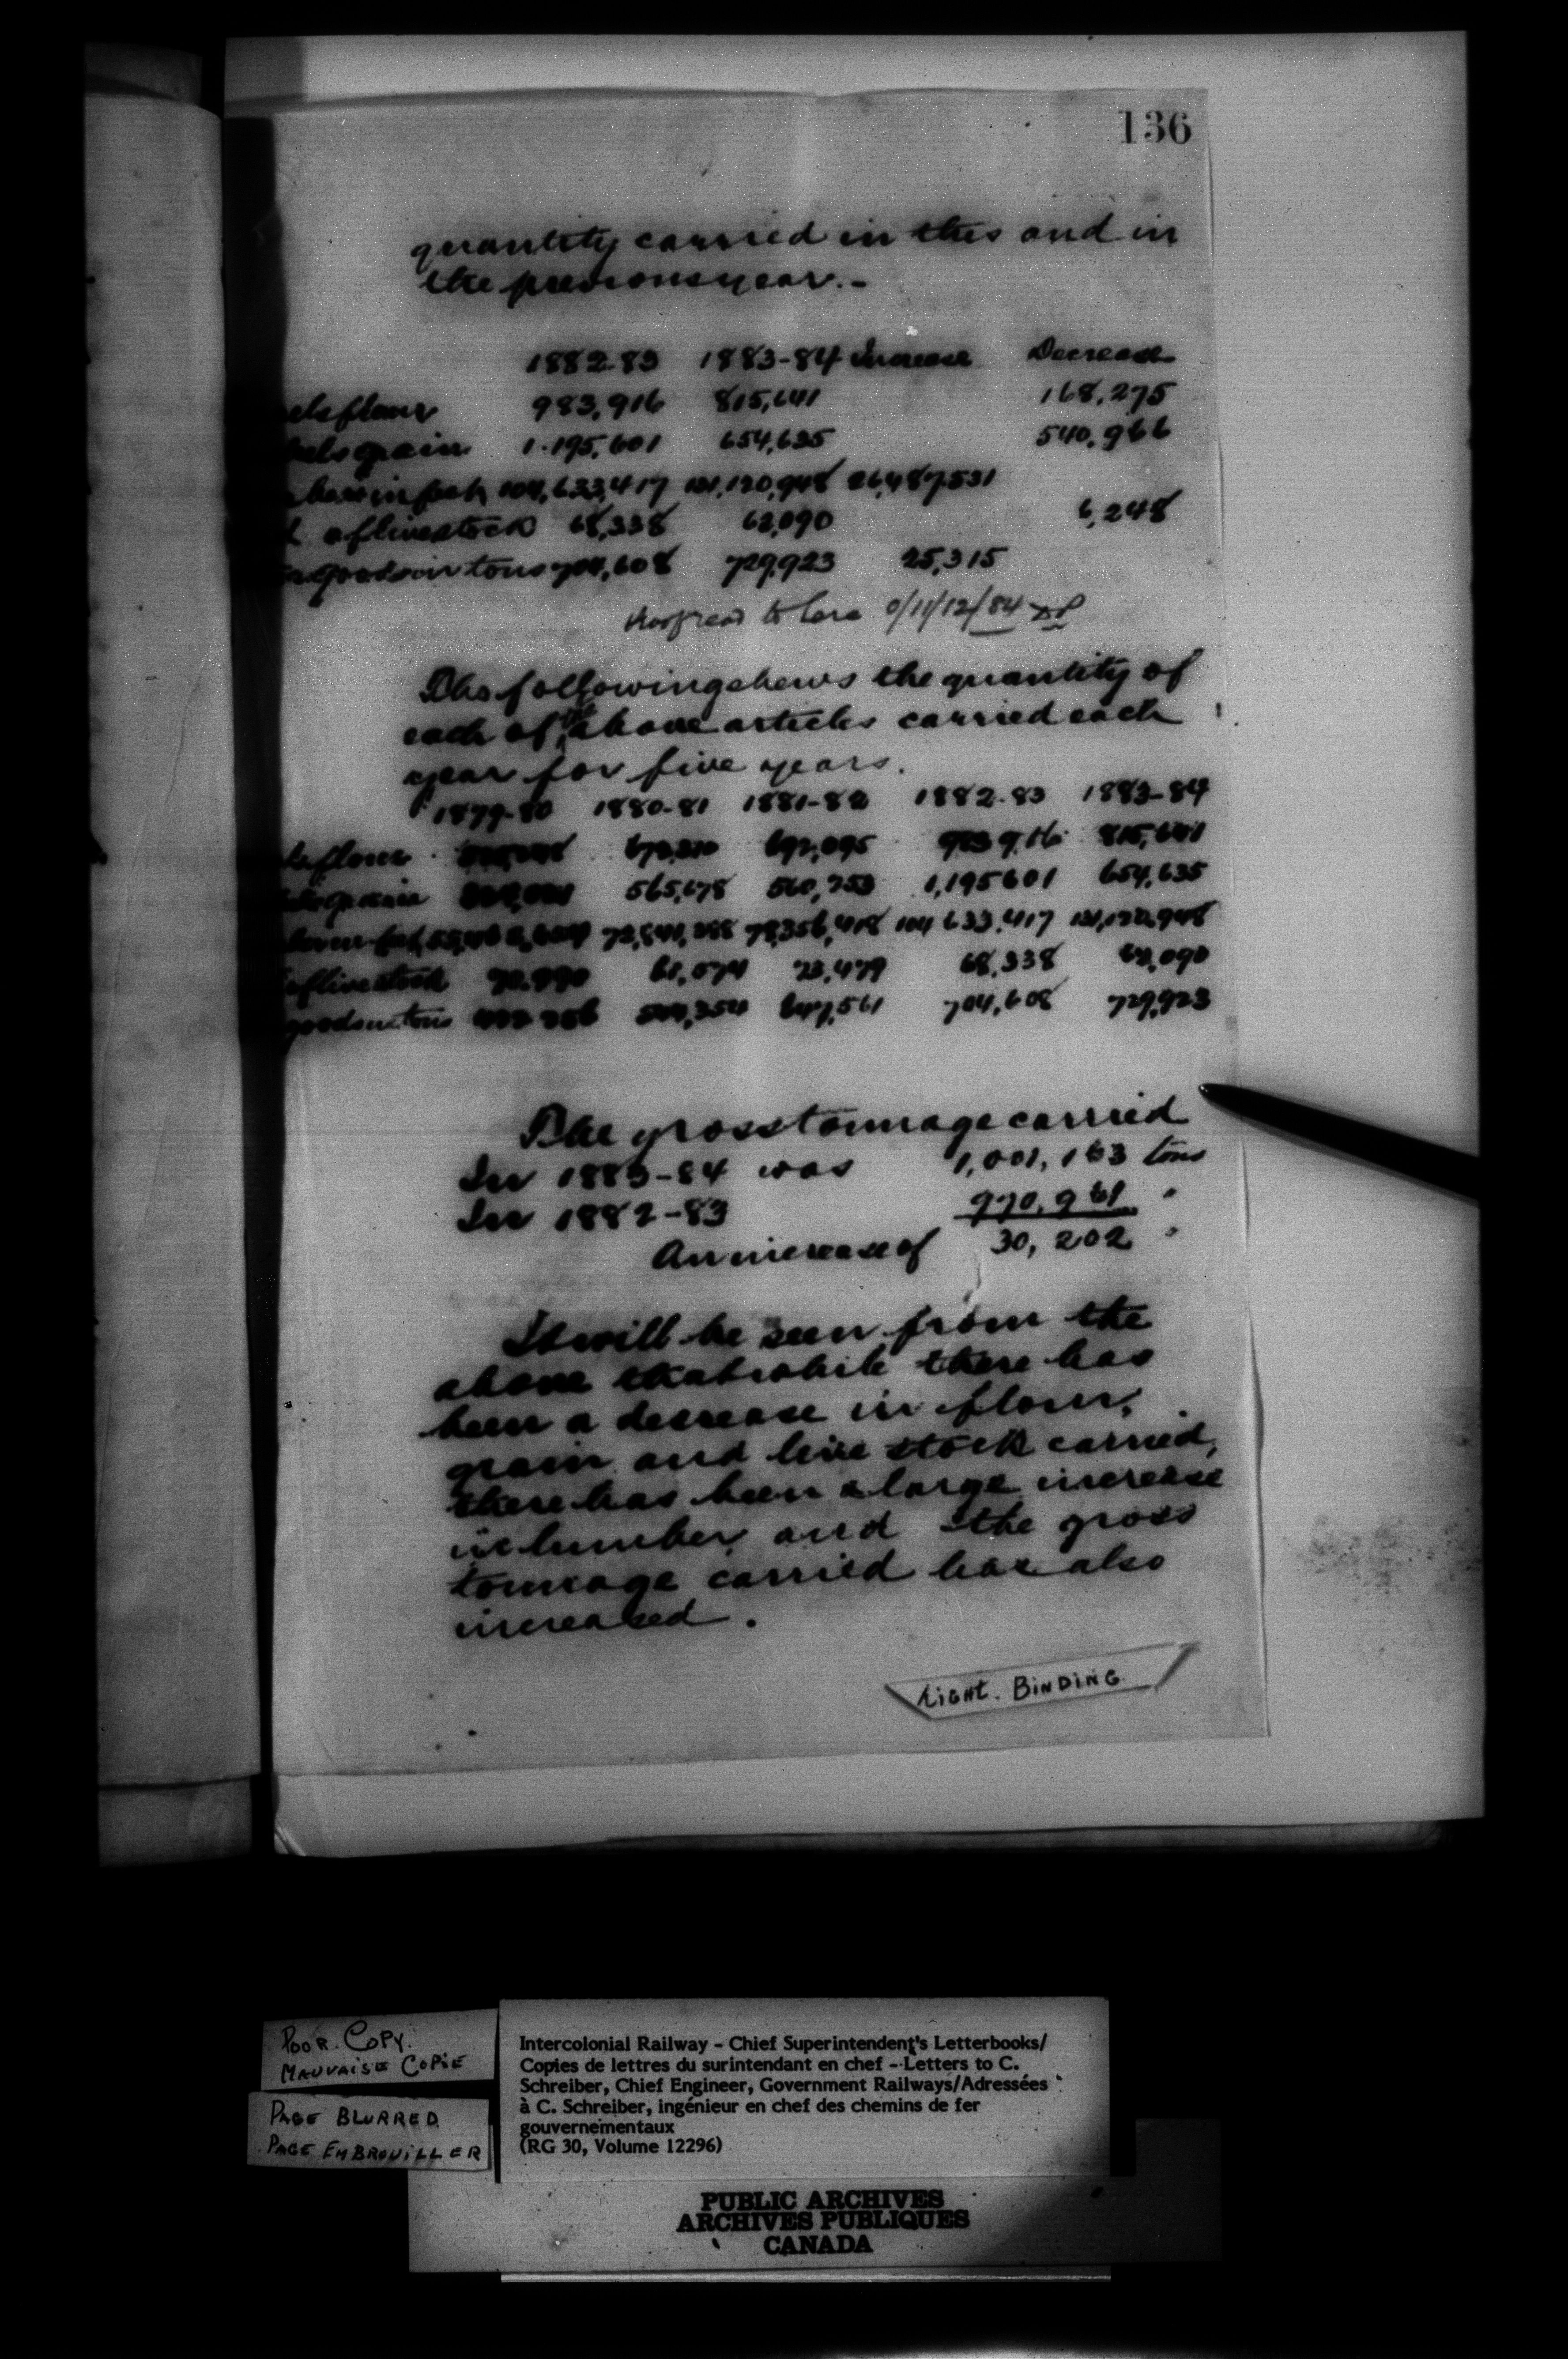 136
quantity carried in this and in
the previous year.-
1882-83 1883-84 Increase Decrease
els flour 983,916 815,641 168,275
hels grain 1.195,601 654,635 540,966
ber in feet 104,633,417 131,120,948 26,487,531
of live stock 68,338 62,090 6,248
goods in tons 704,608 729,923 25,315
Proof read to here 0/11/12/84
The following shews the quantity of
each of the above articles carried each
year for five years.
1879-80 1880-81 1881-82 1882-83 1883-84
ls flour 692,095 983,916 815,641
ls grain 565,678 1,195601 654,635
78,356,418 104 633,417 131,120,948
of live stock 73,479 68,338 62,090
goods in tons 704,608 729,923
The gross tonnage carried
In 1883-84 was 1,001,163 tons
In 1882-83 970,961 "
An increase of 30,202 "
It will be seen from the
above that while there has
been a decrease in flour,
grain and live stock carried,
there has been a large increase
in lumber and the gross
tonnage carried has also
increased.
TIGHT. BINDING.
POOR. COPY.
MAUVAISE COPIE
PAGE BLURRED
PAGE EMBROUILLER
Intercolonial Railway - Chief Superintendent's Letterbooks/
Copies de lettres du surintendant en chef - Letters to C.
Schreiber, Chief Engineer, Government Railways/Adressées
à C. Schreiber, ingénieur en chef des chemins de fer
gouvernementaux
(RG 30, Volume 12296)
PUBLIC ARCHIVES
ARCHIVES PUBLIQUES
CANADA